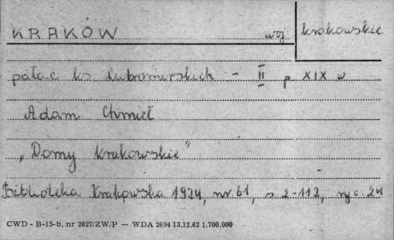 KRAKÓW woj krakowskie
pałac ks. Lubomirskich - II p XIX w
Adam Chmiel
"Domy krakowskie"
Biblioteka Krakowska 1924, nr 61, s 2-112, ryc 24
CWD - B-15-b, nr 2827/ZW/P — WDA 2694 13.12.62 1.700.000